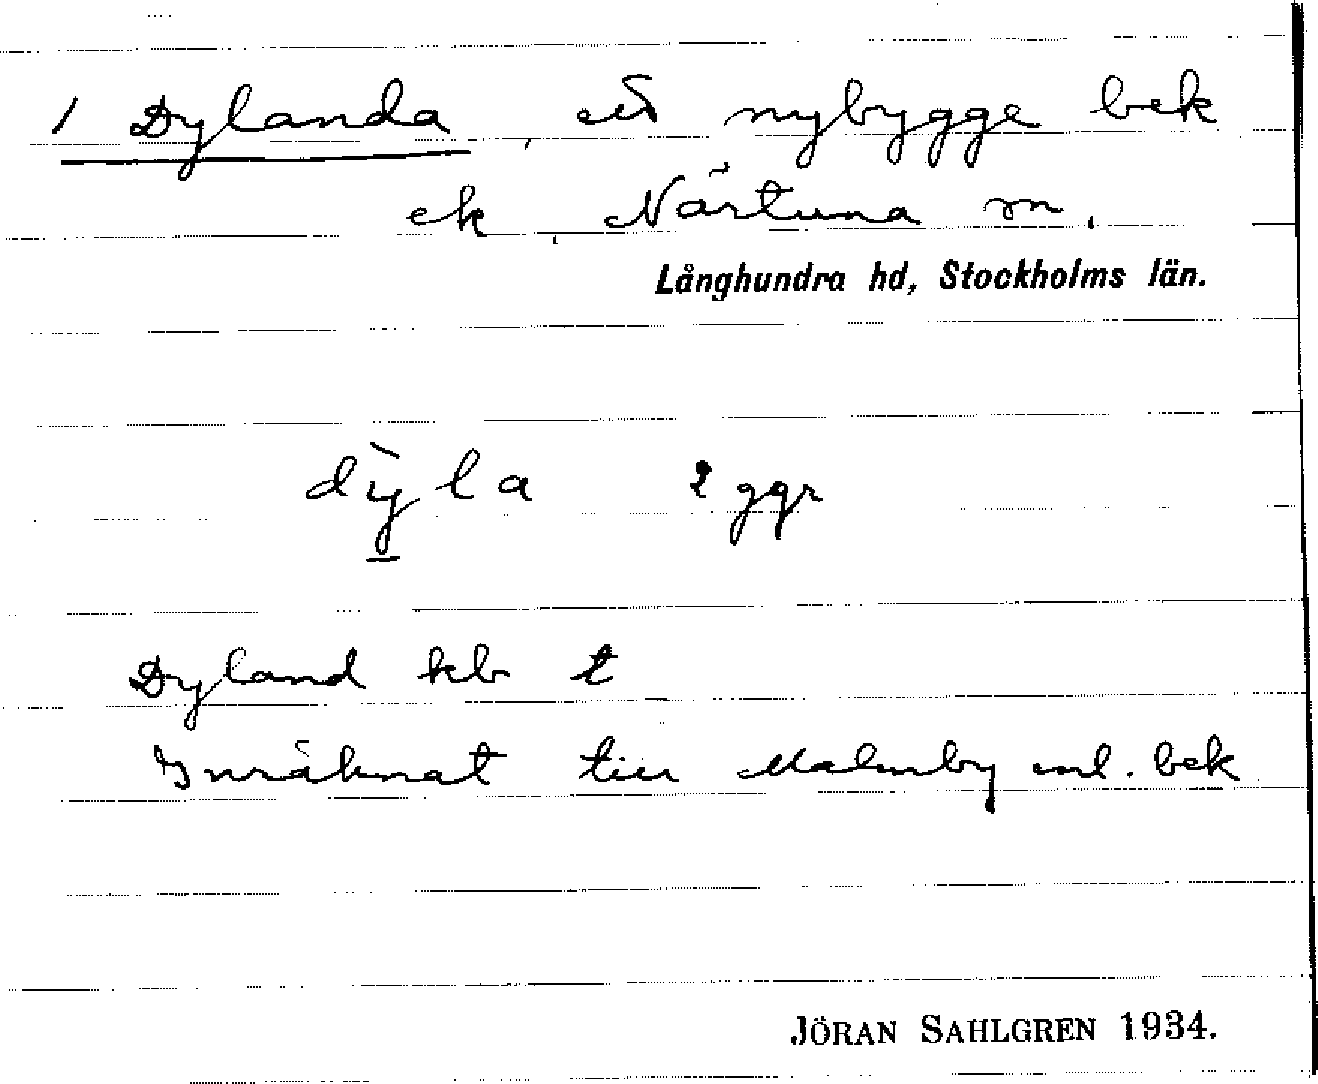 1 Dylanda, ett nybygge bek
ek, Närtuna sn.
Långhundra hd, Stockholms län.
dỳla 2 ggr
Dyland kb t
Inräknat till Malmby enl. bek
JÖRAN SAHLGREN 1934.